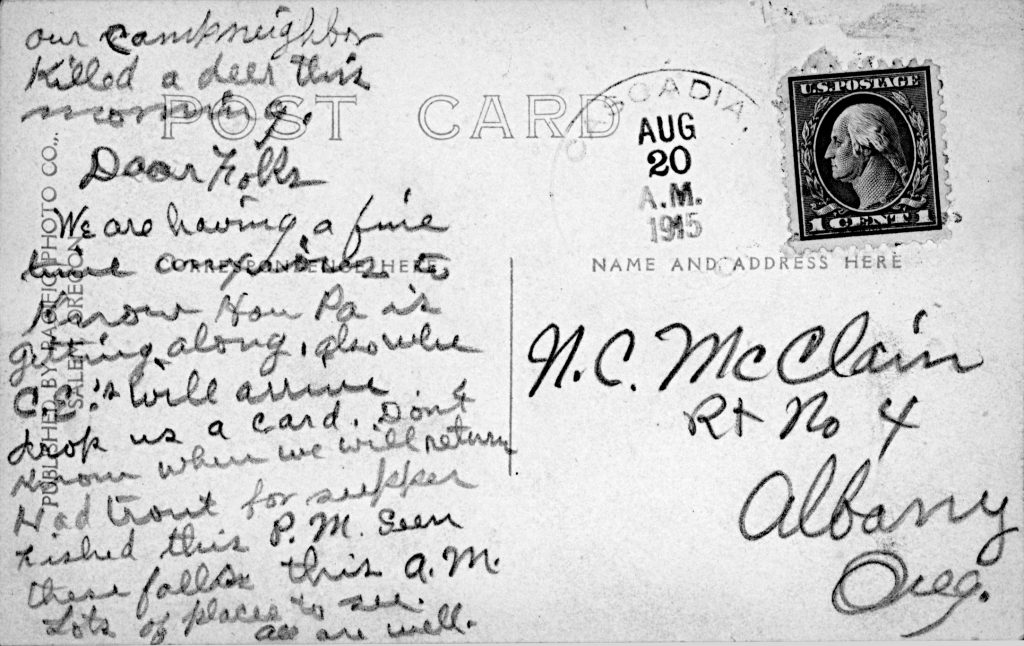 our campneighbor
killed a deer this
morning.
POST CARD
CASCADIA
AUG
20
A.M.
1915
U.S. POSTAGE
1 CENT 1
Dear Folks
We are having a fine
time anxious to
CORRESPONDENCE HERE
NAME AND ADDRESS HERE
Know How Pa is
getting along, also when
C.E.'s will arrive
drop us a card. Don't
know when we will return
Had trout for supper
fished this P.M. Seen
these falls this A.M.
Lots of places to see.
all are well.
N.C. McClain
Rt No 4
Albany
Oreg.
PUBLISHED BY PACIFIC PHOTO CO.,
SALEM, OREGON